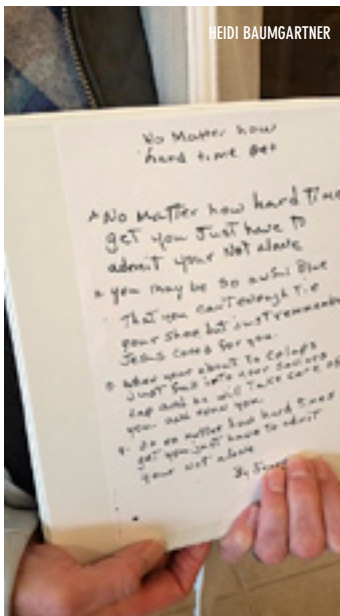 HEIDI BAUMGARTNER
No Matter how
hard time get
No Matter how hard Time
get you Just have To
admit your Not alone
you may be so awful Blue
That you can't enough Tie
your shoe but Just remember
Jesus cares for you.
when your about To Colaps
Just fall into your saviors
lap and he will Take care of
you and now you.
So no matter how hard times
get you Just have to admit
your Not alone
By